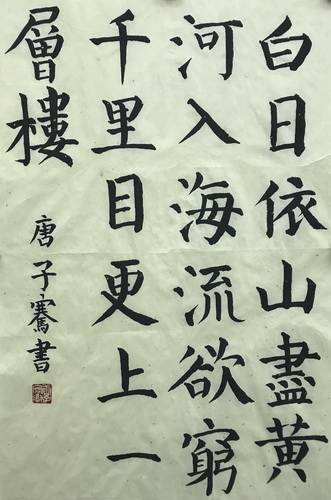 白日依山盡黃
河入海流欲窮
千里目更上一
層樓
唐子騫書